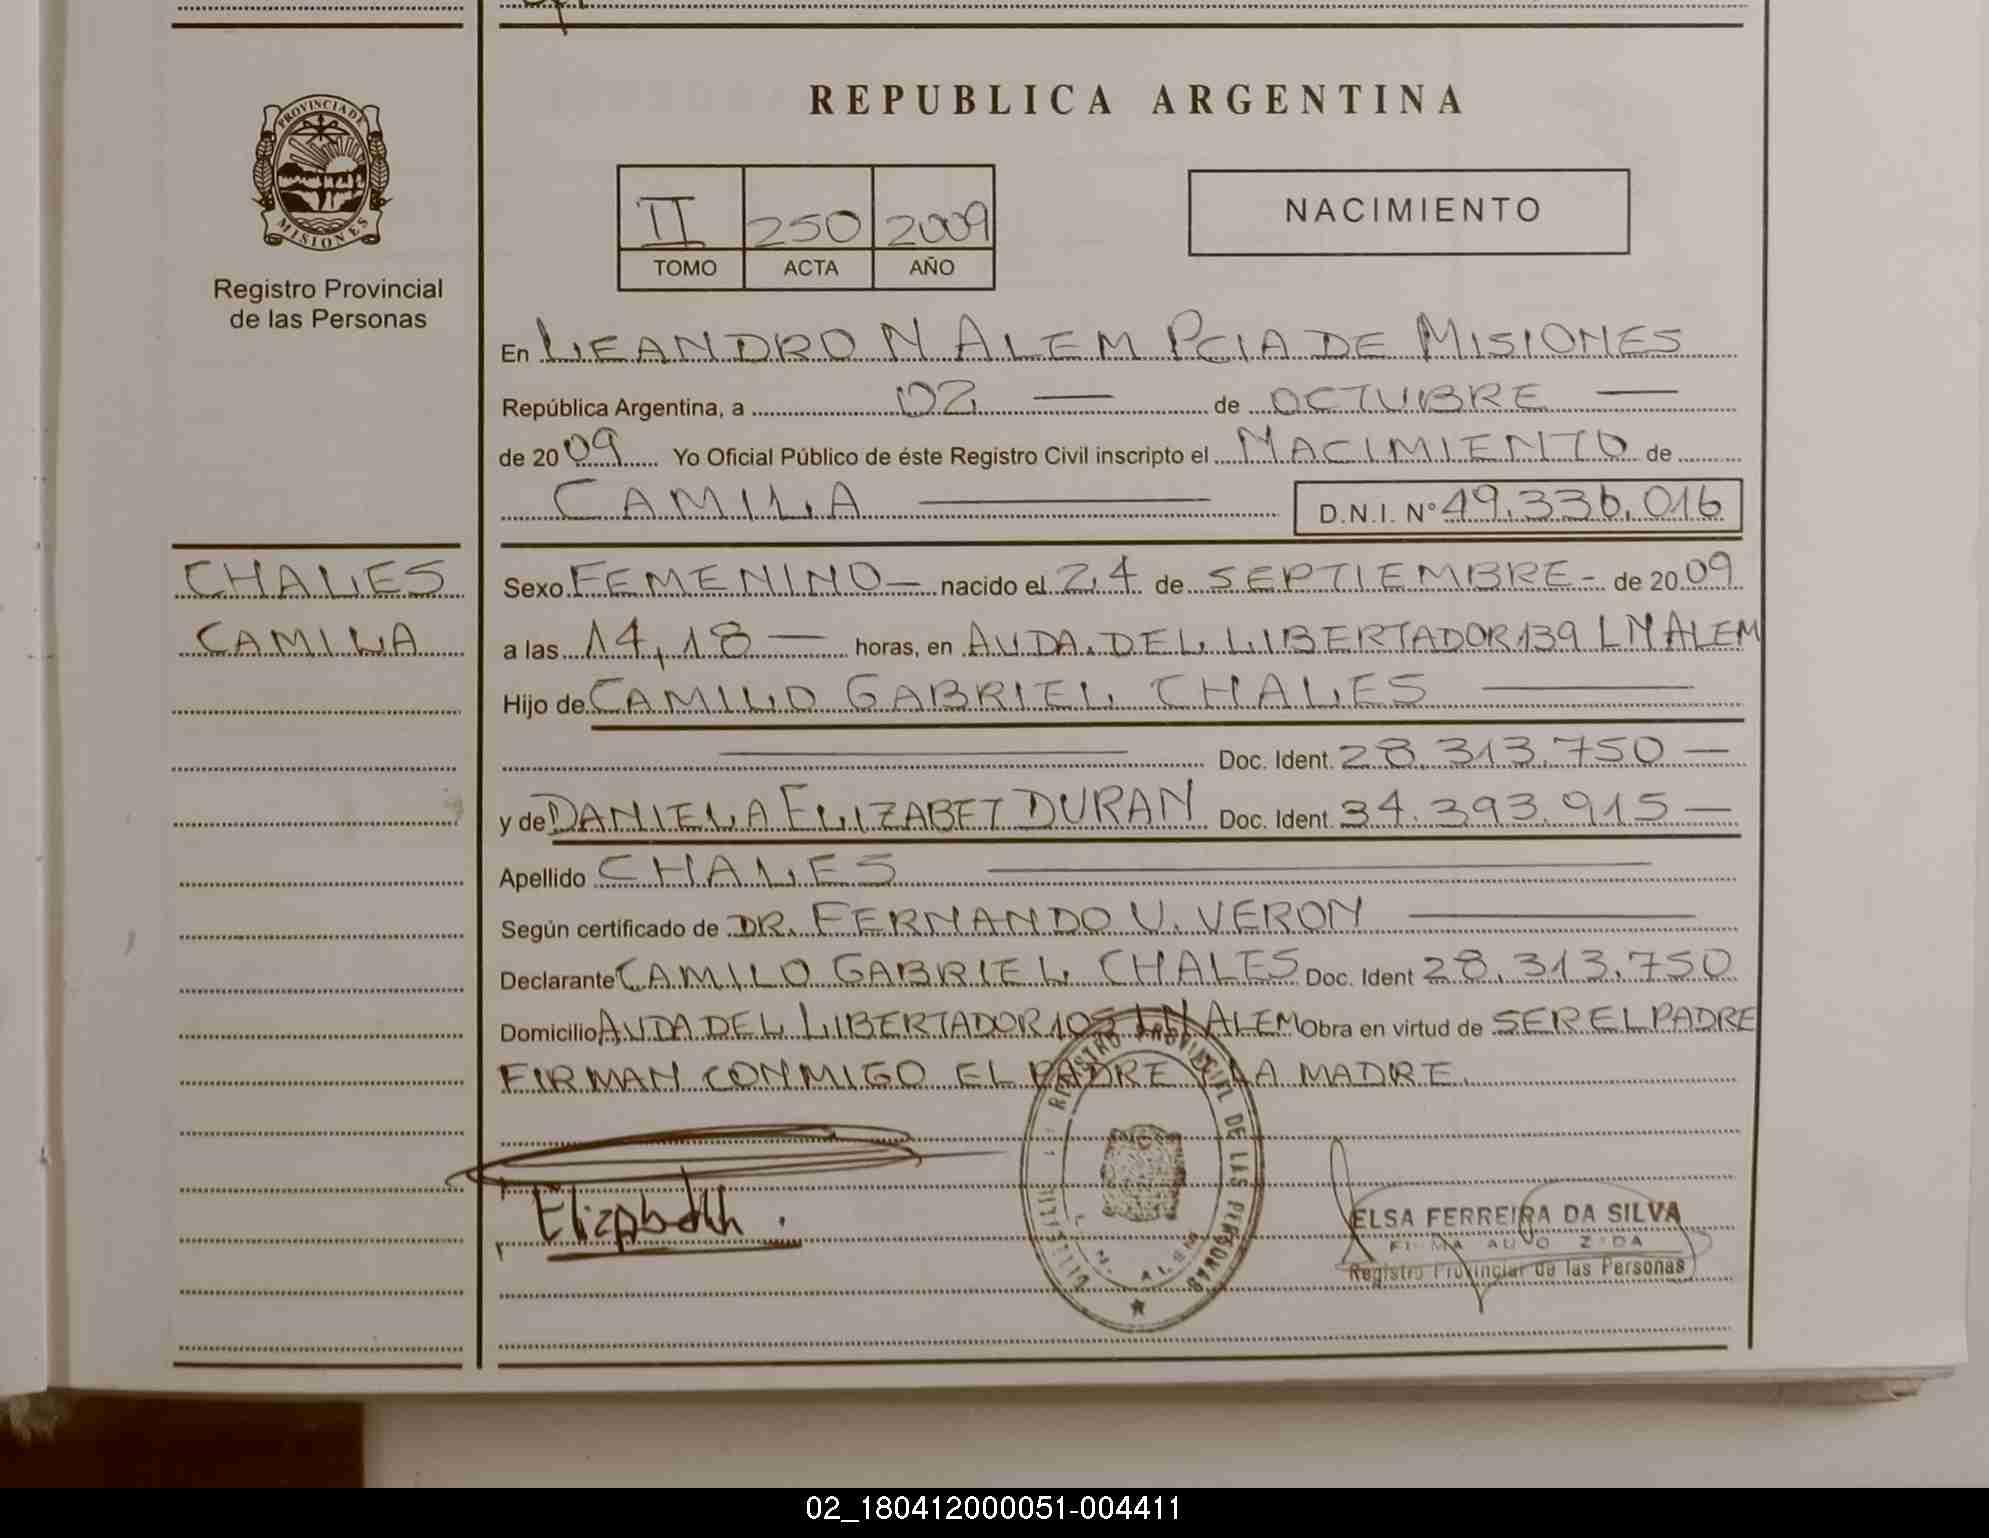 REPUBLICA ARGENTINA
PROVINCIA DE MISIONES
Registro Provincial
de las Personas
II 250 2009
TOMO ACTA AÑO
NACIMIENTO
En LEANDRO N ALEM PCIA DE MISIONES
República Argentina, a 02 — de OCTUBRE —
de 2009 Yo Oficial Público de éste Registro Civil inscripto el NACIMIENTO de
CAMILA — D.N.I. Nº 49.336.016
CHALES
CAMILA
Sexo FEMENINO — nacido el 24 de SEPTIEMBRE - de 2009
a las 14,18 — horas, en AVDA. DEL LIBERTADOR 139 L N ALEM
Hijo de CAMILO GABRIEL CHALES —
— Doc. Ident. 28.313.750 —
y de DANIELA ELIZABET DURAN Doc. Ident. 34.393.915 —
Apellido CHALES —
Según certificado de DR. FERNANDO V. VERON —
Declarante CAMILO GABRIEL CHALES Doc. Ident 28.313.750
Domicilio AVDA DEL LIBERTADOR L N ALEM Obra en virtud de SER EL PADRE
FIRMAN CONMIGO EL PADRE Y LA MADRE.
REGISTRO PROVINCIAL DE LAS PERSONAS
L. N. ALEM
Elizabeth.
ELSA FERREIRA DA SILVA
FIRMA AUTORIZADA
Registro Provincial de las Personas
02_180412000051-004411